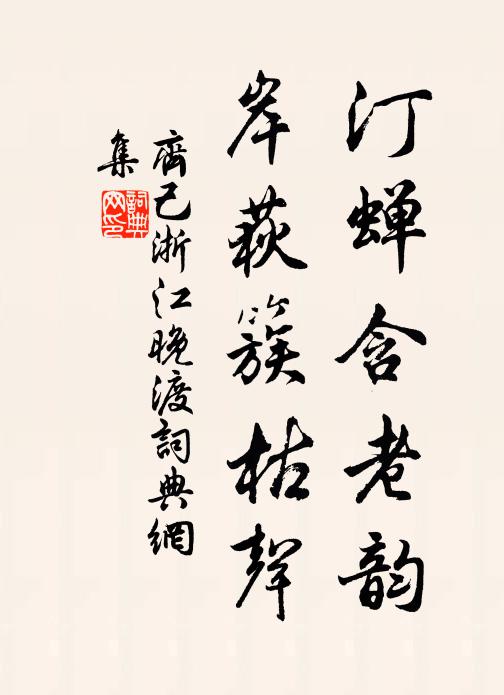 汀蝉含老韵
岸荻簇枯聲
齊己浙江晚渡詞典網
集
詞典
网印